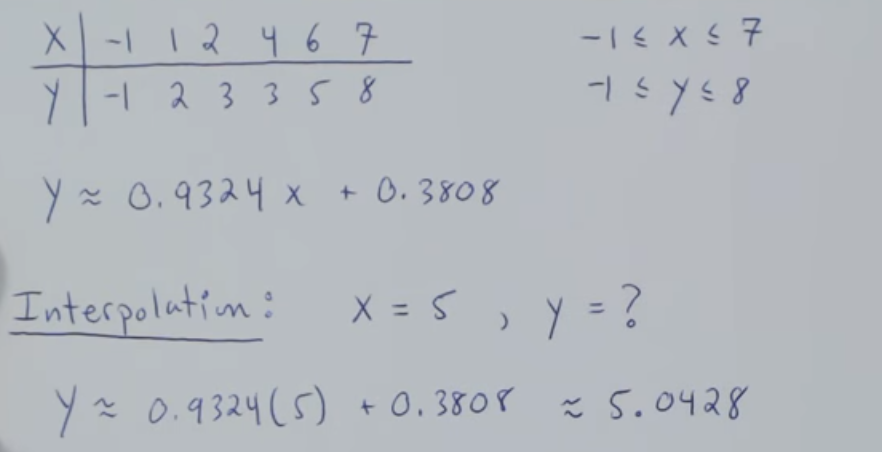 X | -1 1 2 4 6 7
-1 ≤ x ≤ 7
Y | -1 2 3 3 5 8
-1 ≤ y ≤ 8
y ≈ 0.9324 x + 0.3808
Interpolation: x = 5 , y = ?
y ≈ 0.9324(5) + 0.3808 ≈ 5.0428